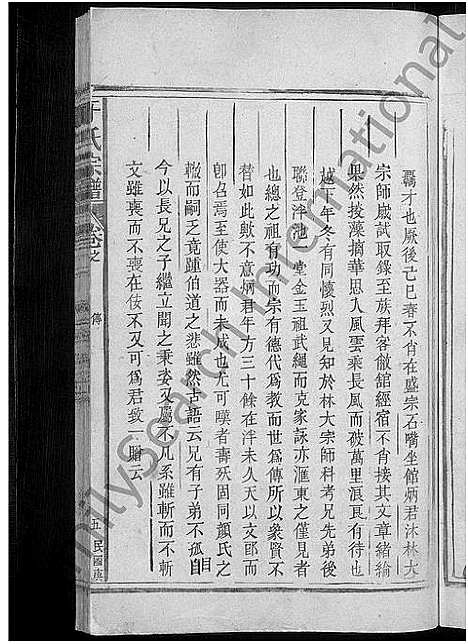 覊才也厥後己巳春不肖在盛宗石嘴坐館炳君沐林大
宗師歲試取錄至族拜客僘舘經宿不肖接其文章緒綸
果然掞藻摛華思入風雲乘長風而破萬里洵有待也
越下年冬有同懷烈又見知於林大宗師科考兄先弟後
聯登泮池一堂金玉祖武繩而克家詠亦滙東之僅見者
也總之祖有功而宗有德代爲教而世爲傳所以象賢不
替如此獨不意炳君年方三十餘在泮未久天以文郎而
卽召焉至使大器而未成也尤可嘆者壽殀固同顏氏之
轍而嗣乏竟踵伯道之悲雖然古語云兄有子弟不孤自
今以長兄之子繼立聞之秉姿又屬不凡系雖斬而不斬
文雖喪而不喪在伎不又可爲君致一賻云
于氏宗譜
卷之
傳
五
民國
FamilySearch International